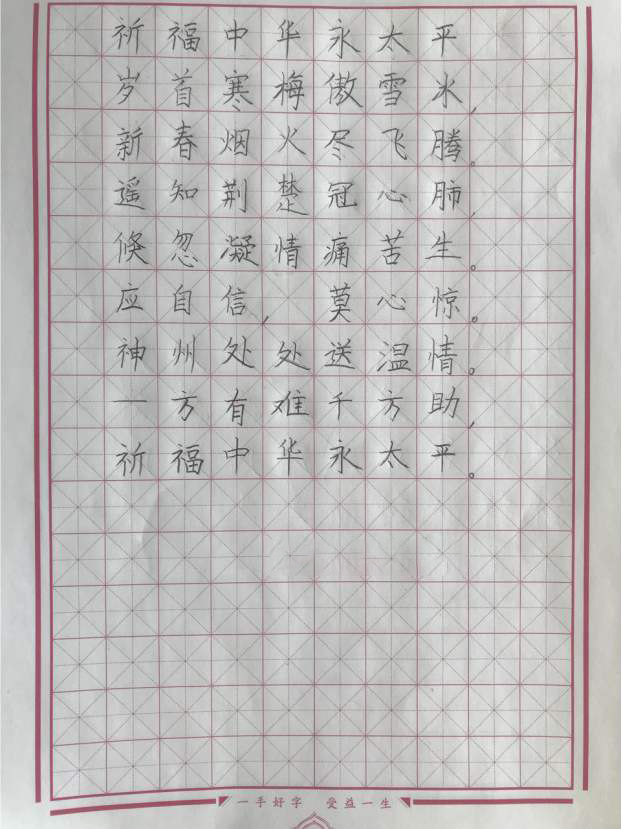 祈福中华永太平
岁首寒梅傲雪冰,
新春烟火尽飞腾。
遥知荆楚冠心肺,
倏忽凝情痛苦生。
应自信, 莫心惊。
神州处处送温情。
一方有难千方助,
祈福中华永太平。
一手好字 受益一生